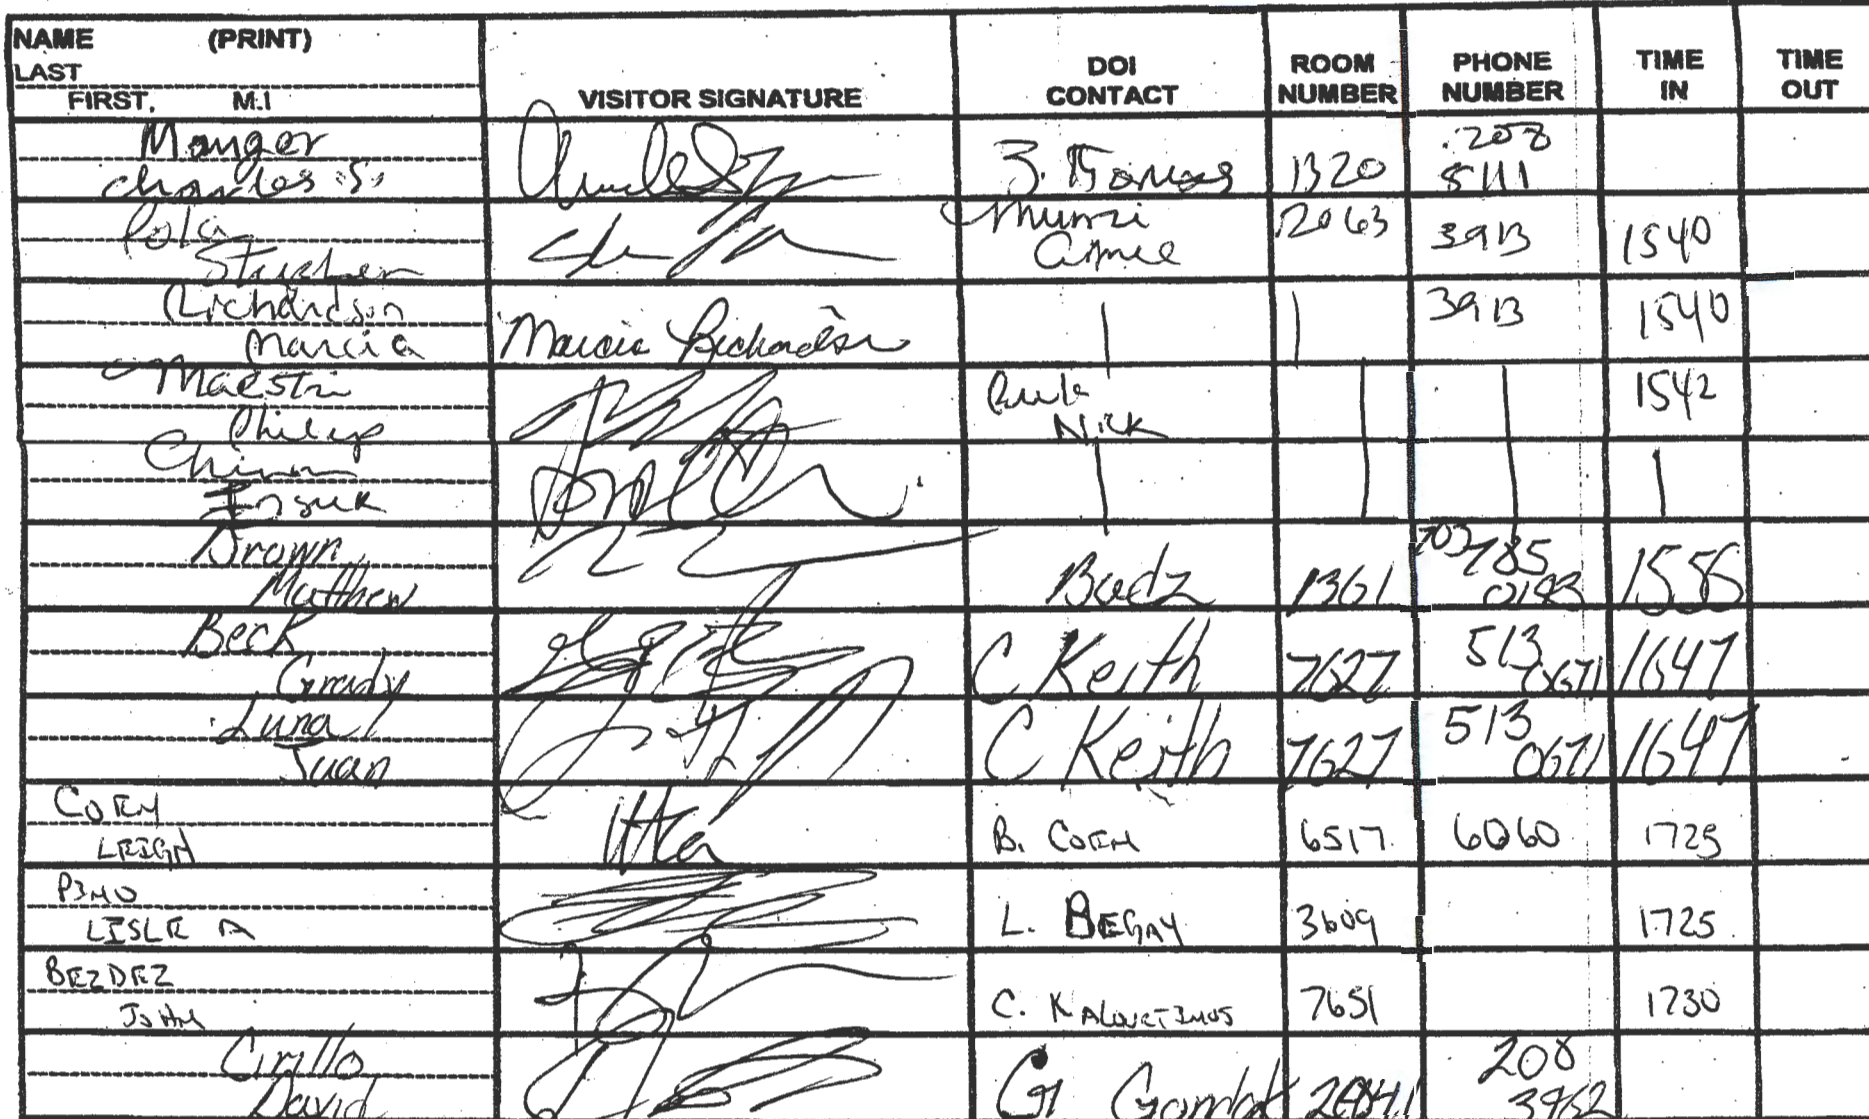 NAME (PRINT)
LAST
FIRST, M.I
VISITOR SIGNATURE
DOI CONTACT
ROOM NUMBER
PHONE NUMBER
TIME IN
TIME OUT
Monger
Charles S.
1320
208
5111
Stephen
2063
3913
1540
Richardson
Marcia
Marcia Richardson
3913
1540
Maestri
Philip
Nick
1542
Chinn
Insuk
Brown
Matthew
Budz
1361
703
785
1558
Beck
Grady
C Keith
7627
513
0671
1647
Luna
Juan
C Keith
7627
513
0671
1647
COEN
LEIGH
B. COEN
6517
6060
1725
PINO
LISLE A
L. BEGAY
3609
1725
BEZDEZ
JOHN
C.
7651
1730
Cirillo
David
G
208
3962